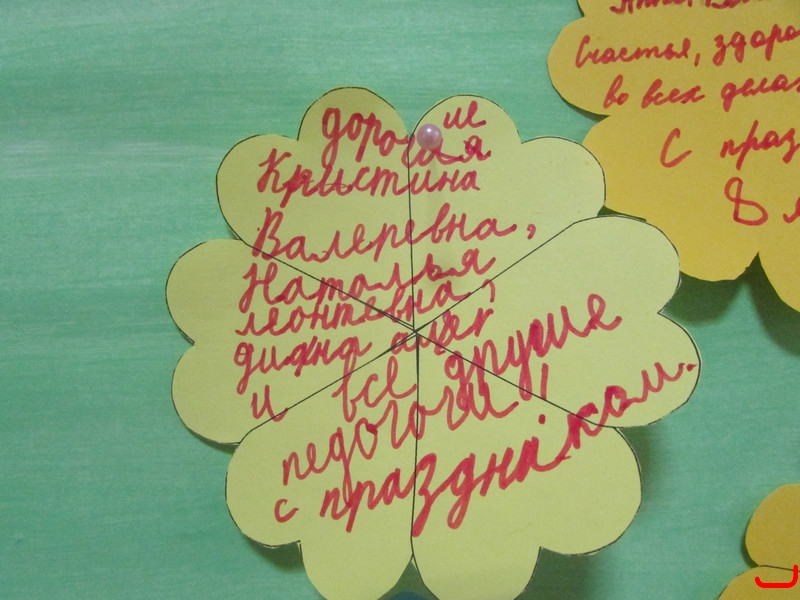 дорогие
Кристина
Валеревна,
Наталья
леонтевна,
диана
и все другие
педогоги!
с праздником.
Счастья,
во всех делах
С праз
8